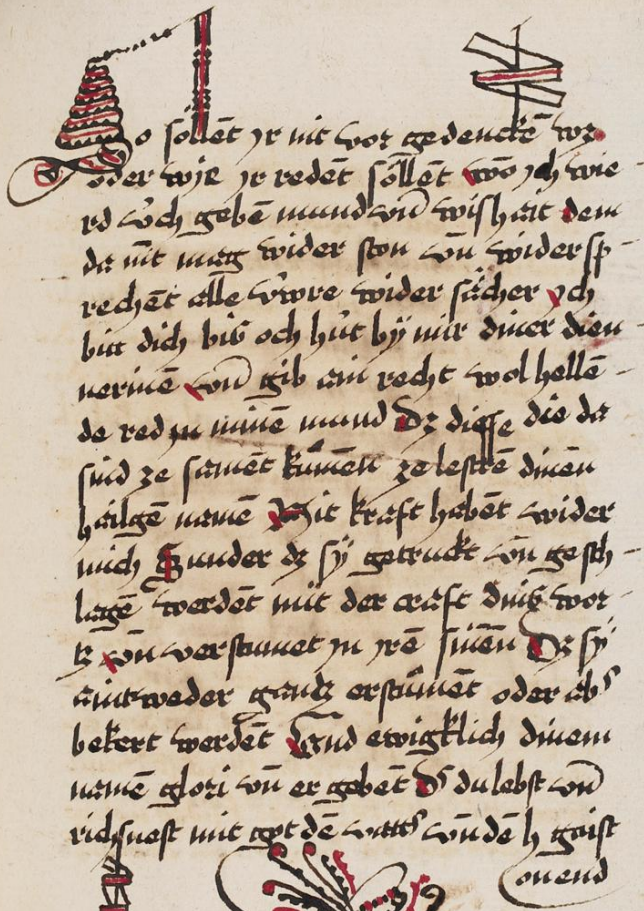 o söllēt yr nit vor gedenckē wz
oder wye yr redēt söllēt wō ych wie
rd vͥch gebē mund vn̄ wishait dem
da nit mag wider ston vn̄ widersp
rechēt alle vͥwre wider sächer ych
bitt dich bis och hu̍t by̎ mir diner dien
nerinē vn̄ gib ain recht wol hellē
de red yn minē mund Dz diesse die da
sind ze samēt kumen ze lestrē dinen
hailgē namē Nit kraft habēt wider
mich Sunder dz sy̎ getruckt vn̄ gesch
lagē werdēt mit der craft diner wor
tz vn̄ verstumet yn yrē sinen Dz sy̎
aintweder gantz erstument oder ab
bekert werdēt Vnd ewigklich dinem
namē glori vn̄ er gebēt Dͬ du lebst vn̄
richsnest mit got dē vatter vn̄ dē h gaist